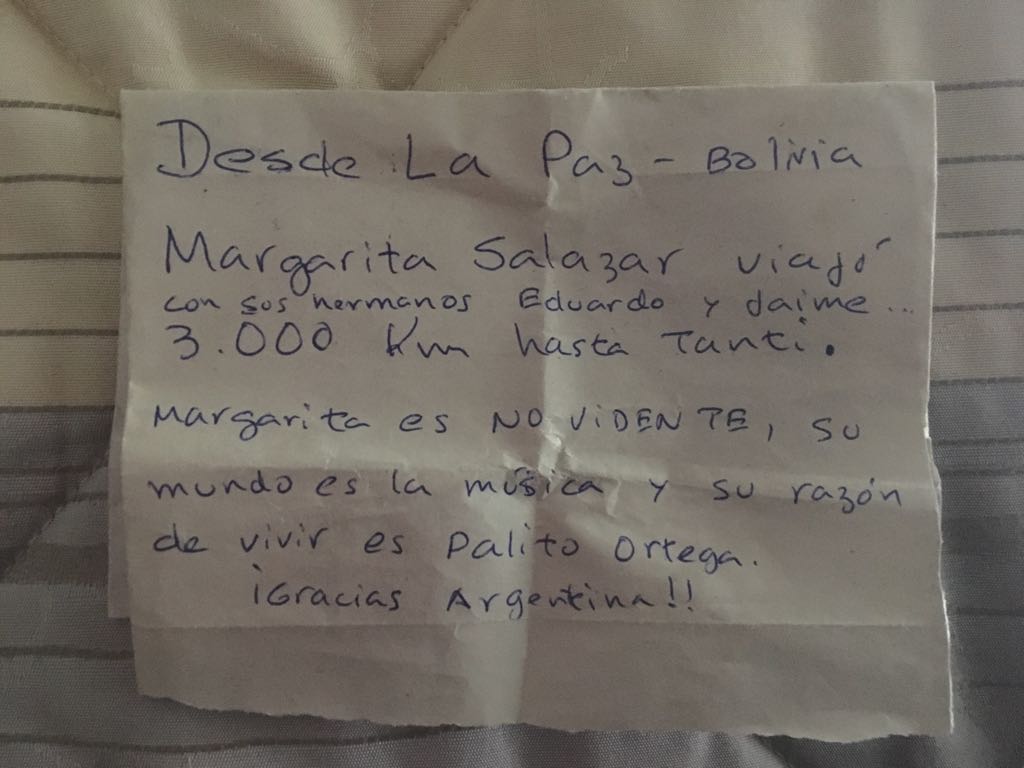 Desde La Paz - Bolivia
Margarita Salazar viajó
con sus hermanos Eduardo y Jaime...
3.000 Km hasta Tanti.
Margarita es NO VIDENTE, su
mundo es la música y su razón
de vivir es Palito Ortega.
¡Gracias Argentina!!